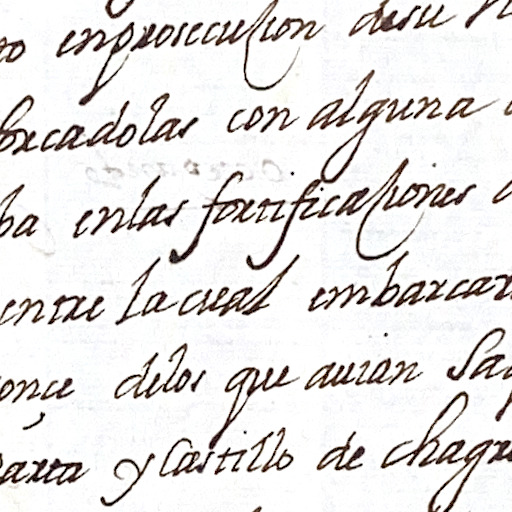 to en prosecuçion desu
forcadolas con alguna
ba enlas fortificaçiones
entre la creal embarcar
onçe delos que auian Sa
arta y Castillo de chagr